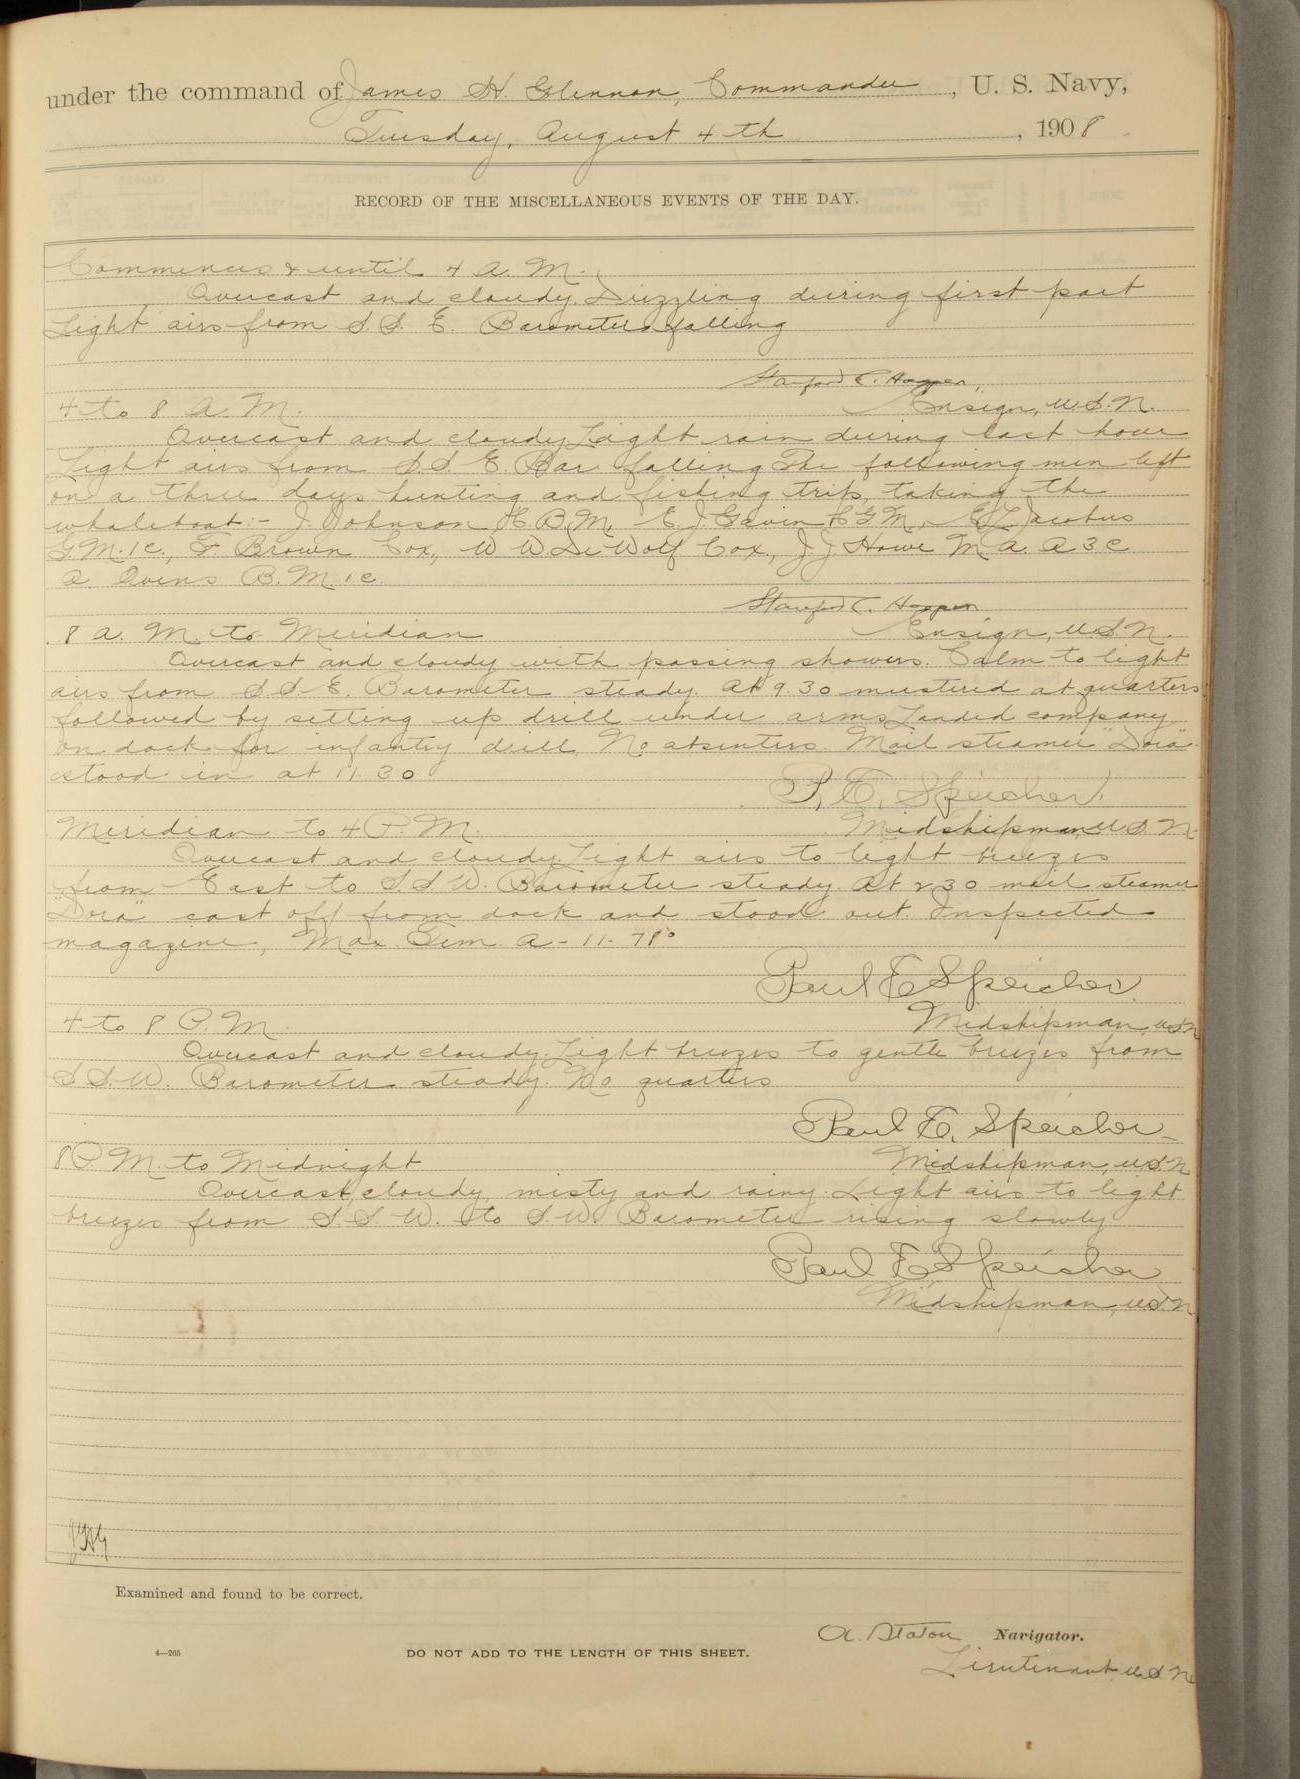 under the command of James H. Glennon, Commander, U. S. Navy,
Tuesday, August 4th, 1908
RECORD OF THE MISCELLANEOUS EVENTS OF THE DAY.
Commences & until 4 A. M.
Overcast and cloudy. Drizzling during first part
Light airs from S. S. E. Barometer falling
Stanford C. Hooper,
4 to 8 A. M. Ensign, U. S. N.
Overcast and cloudy Light rain during last hour
Light airs from S. S. E. Bar falling The following men left
on a three days hunting and fishing trip, taking the
whaleboat:- J. Johnson C. B. M., E. J. Gavin C G M, E L Jacobus
G. M. 1c., F. Brown Cox, W W De Wolf Cox., J J Howe M. A. A 3 c
A. Ovens B. M. 1c.
Stanford C. Hooper
8 A. M. to Meridian Ensign, U. S. N.
Overcast and cloudy with passing showers. Calm to light
airs from S. S. E. Barometer steady. At 9.30 mustered at quarters
followed by setting up drill under arms, Landed company
on dock for infantry drill, No absentees. Mail steamer "Dora"
stood in at 11.30
P. E. Speicher.
Meridian to 4 P. M. Midshipman, U. S. N.
Overcast and cloudy. Light airs to light breezes
from East to S. S. W. Barometer steady. At 2 30 mail steamer
"Dora" cast off from dock and stood out. Inspected
magazine, Max. Tem. A-11-78°
Paul E Speicher.
4 to 8 P. M. Midshipman, U S N
Overcast and cloudy. Light breezes to gentle breezes from
S. S. W. Barometer steady. No quarters
Paul E. Speicher
8 P. M. to Midnight Midshipman, U. S. N
Overcast, cloudy, misty and rainy. Light airs to light
breezes from S. S. W. to S. W. Barometer rising slowly
Paul E Speicher
Midshipman, U. S. N
JHG
Examined and found to be correct.
A. Staton Navigator.
4—265 DO NOT ADD TO THE LENGTH OF THIS SHEET.
Lieutenant U S N